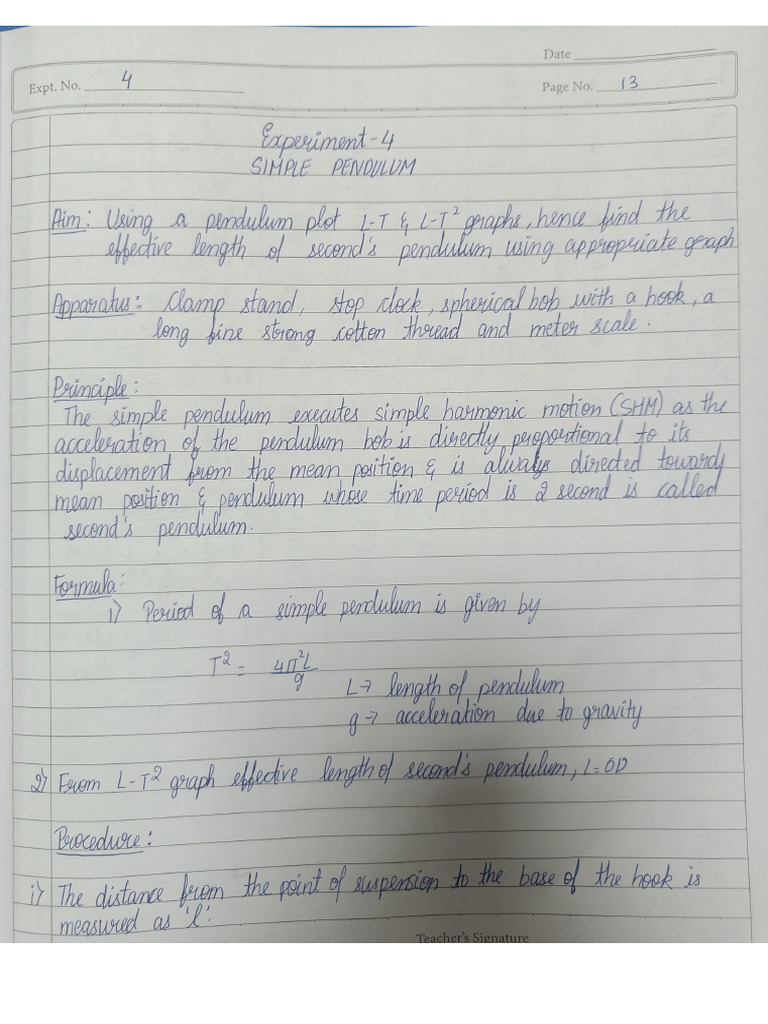 Date
Expt. No. 4
Page No. 13
Experiment-4
SIMPLE PENDULUM
Aim: Using a pendulum plot L-T & L-T² graphs, hence find the
effective length of second's pendulum using appropriate graph
Apparatus: Clamp stand, stop clock, spherical bob with a hook, a
long fine strong cotton thread and meter scale.
Principle:
The simple pendulum executes simple harmonic motion (SHM) as the
acceleration of the pendulum bob is directly proportional to its
displacement from the mean position & is always directed towards
mean position & pendulum whose time period is 2 second is called
second's pendulum.
Formula:
1) Period of a simple pendulum is given by
T² = 4π²L/g
L→ length of pendulum
g→ acceleration due to gravity
2) From L-T² graph effective length of second's pendulum, L=OD
Procedure:
i) The distance from the point of suspension to the base of the hook is
measured as 'l'.
Teacher's Signature